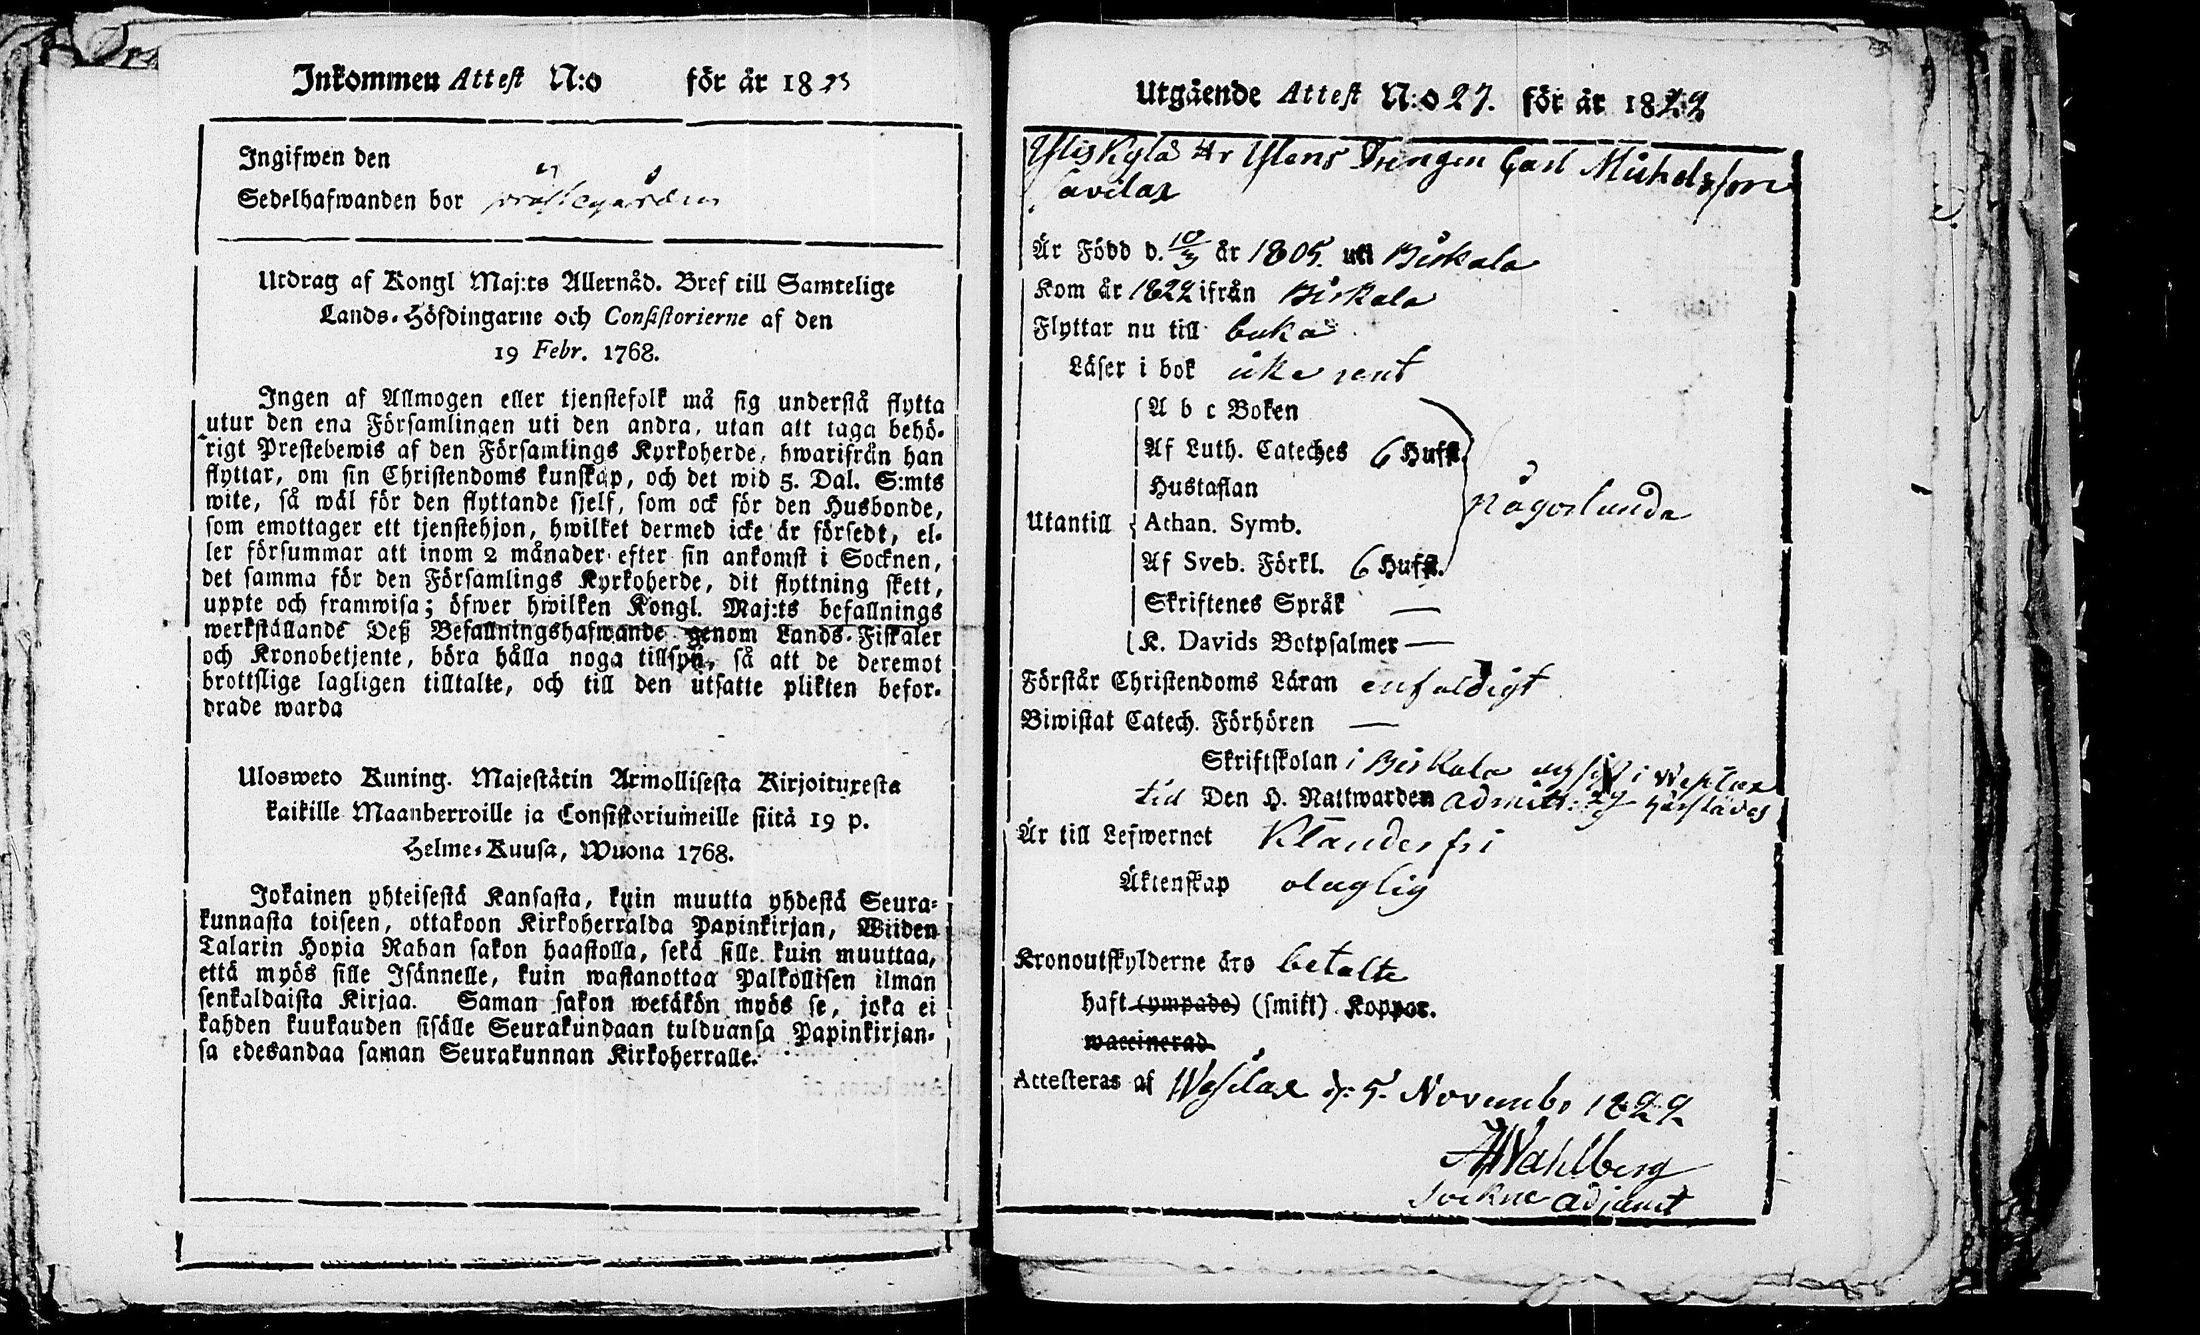 Inkommen Attest N:o för år 1823
Ingifwen den
Sedelhafwanden bor prästegården
Utdrag af Kongl Maj:ts Allernåd. Bref till Samtelige
Lands-Höfdingarne och Consistorierne af den
19 Febr. 1768.
Ingen af Allmogen eller tjenstefolk må sig understå flytta
utur den ena Församlingen uti den andra, utan att taga behö-
rigt Prestebewis af den Församlings Kyrkoherde, hwarifrån han
flyttar, om sin Christendoms kunskap, och det wid 5. Dal. S:mts
wite, så wäl för den flyttande sjelf, som ock för den Husbonde,
som emottager ett tjenstehjon, hwilket dermed icke är försedt, el-
ler försummar att inom 2 månader efter sin ankomst i Socknen,
det samma för den Församlings Kyrkoherde, dit flyttning skett,
uppte och framwisa; öfwer hwilken Kongl. Maj:ts befallnings
werkställande Deß Befallningshafwande genom Lands-Fiskaler
och Kronobetjente, böra hålla noga tillsyn, så att de deremot
brottslige lagligen tilltalte, och till den utsatte plikten befor-
drade warda
Ulosweto Kuning. Majestätin Armollisesta Kirjoituxesta
kaikille Maanherroille ja Consistoriumeille siitä 19 p.
Helme-Kuusa, Wuona 1768.
Jokainen yhteisestä Kansasta, kuin muutta yhdestä Seura-
kunnasta toiseen, ottakoon Kirkoherralda Papinkirjan, Wiiden
Talarin Hopia Rahan sakon haastolla, sekä sille kuin muuttaa,
että myös sille Isännelle, kuin wastanottaa Palkollisen ilman
senkaldaista Kirjaa. Saman sakon wetäkön myös se, joka ei
kahden kuukauden sisälle Seurakundaan tulduansa Papinkirjan-
sa edesandaa saman Seurakunnan Kirkoherralle.
Utgående Attest N:o 27. för år 1822
Drengen Carl Michelsson
Savilax
Är Född d. 10/3 år 1805. uti Birkala
Kom år 1822 ifrån Birkala
Flyttar nu till
Läser i bok icke rent
A b c Boken
Af Luth. Cateches 6 Hufst.
Hustaflan
Utantill Athan. Symb. någorlunda
Af Sveb. Förkl. 6 Hufst.
Skriftenes Språk —
K. Davids Botpsalmer —
Förstår Christendoms Läran enfaldigt
Biwistat Catech. Förhören —
Skriftskolan i Birkala i Wesilax
till Den H. Nattwarden admitt: härstädes
Är till Lefwernet Klanderfri
Äktenskap oledig
Kronoutskylderne äro betalte
haft (ympade) (smitt) Koppor.
waccinerad.
Attesteras af Wesilax d: 5. Novemb. 1822
A Wahlberg
Sockne adjunct